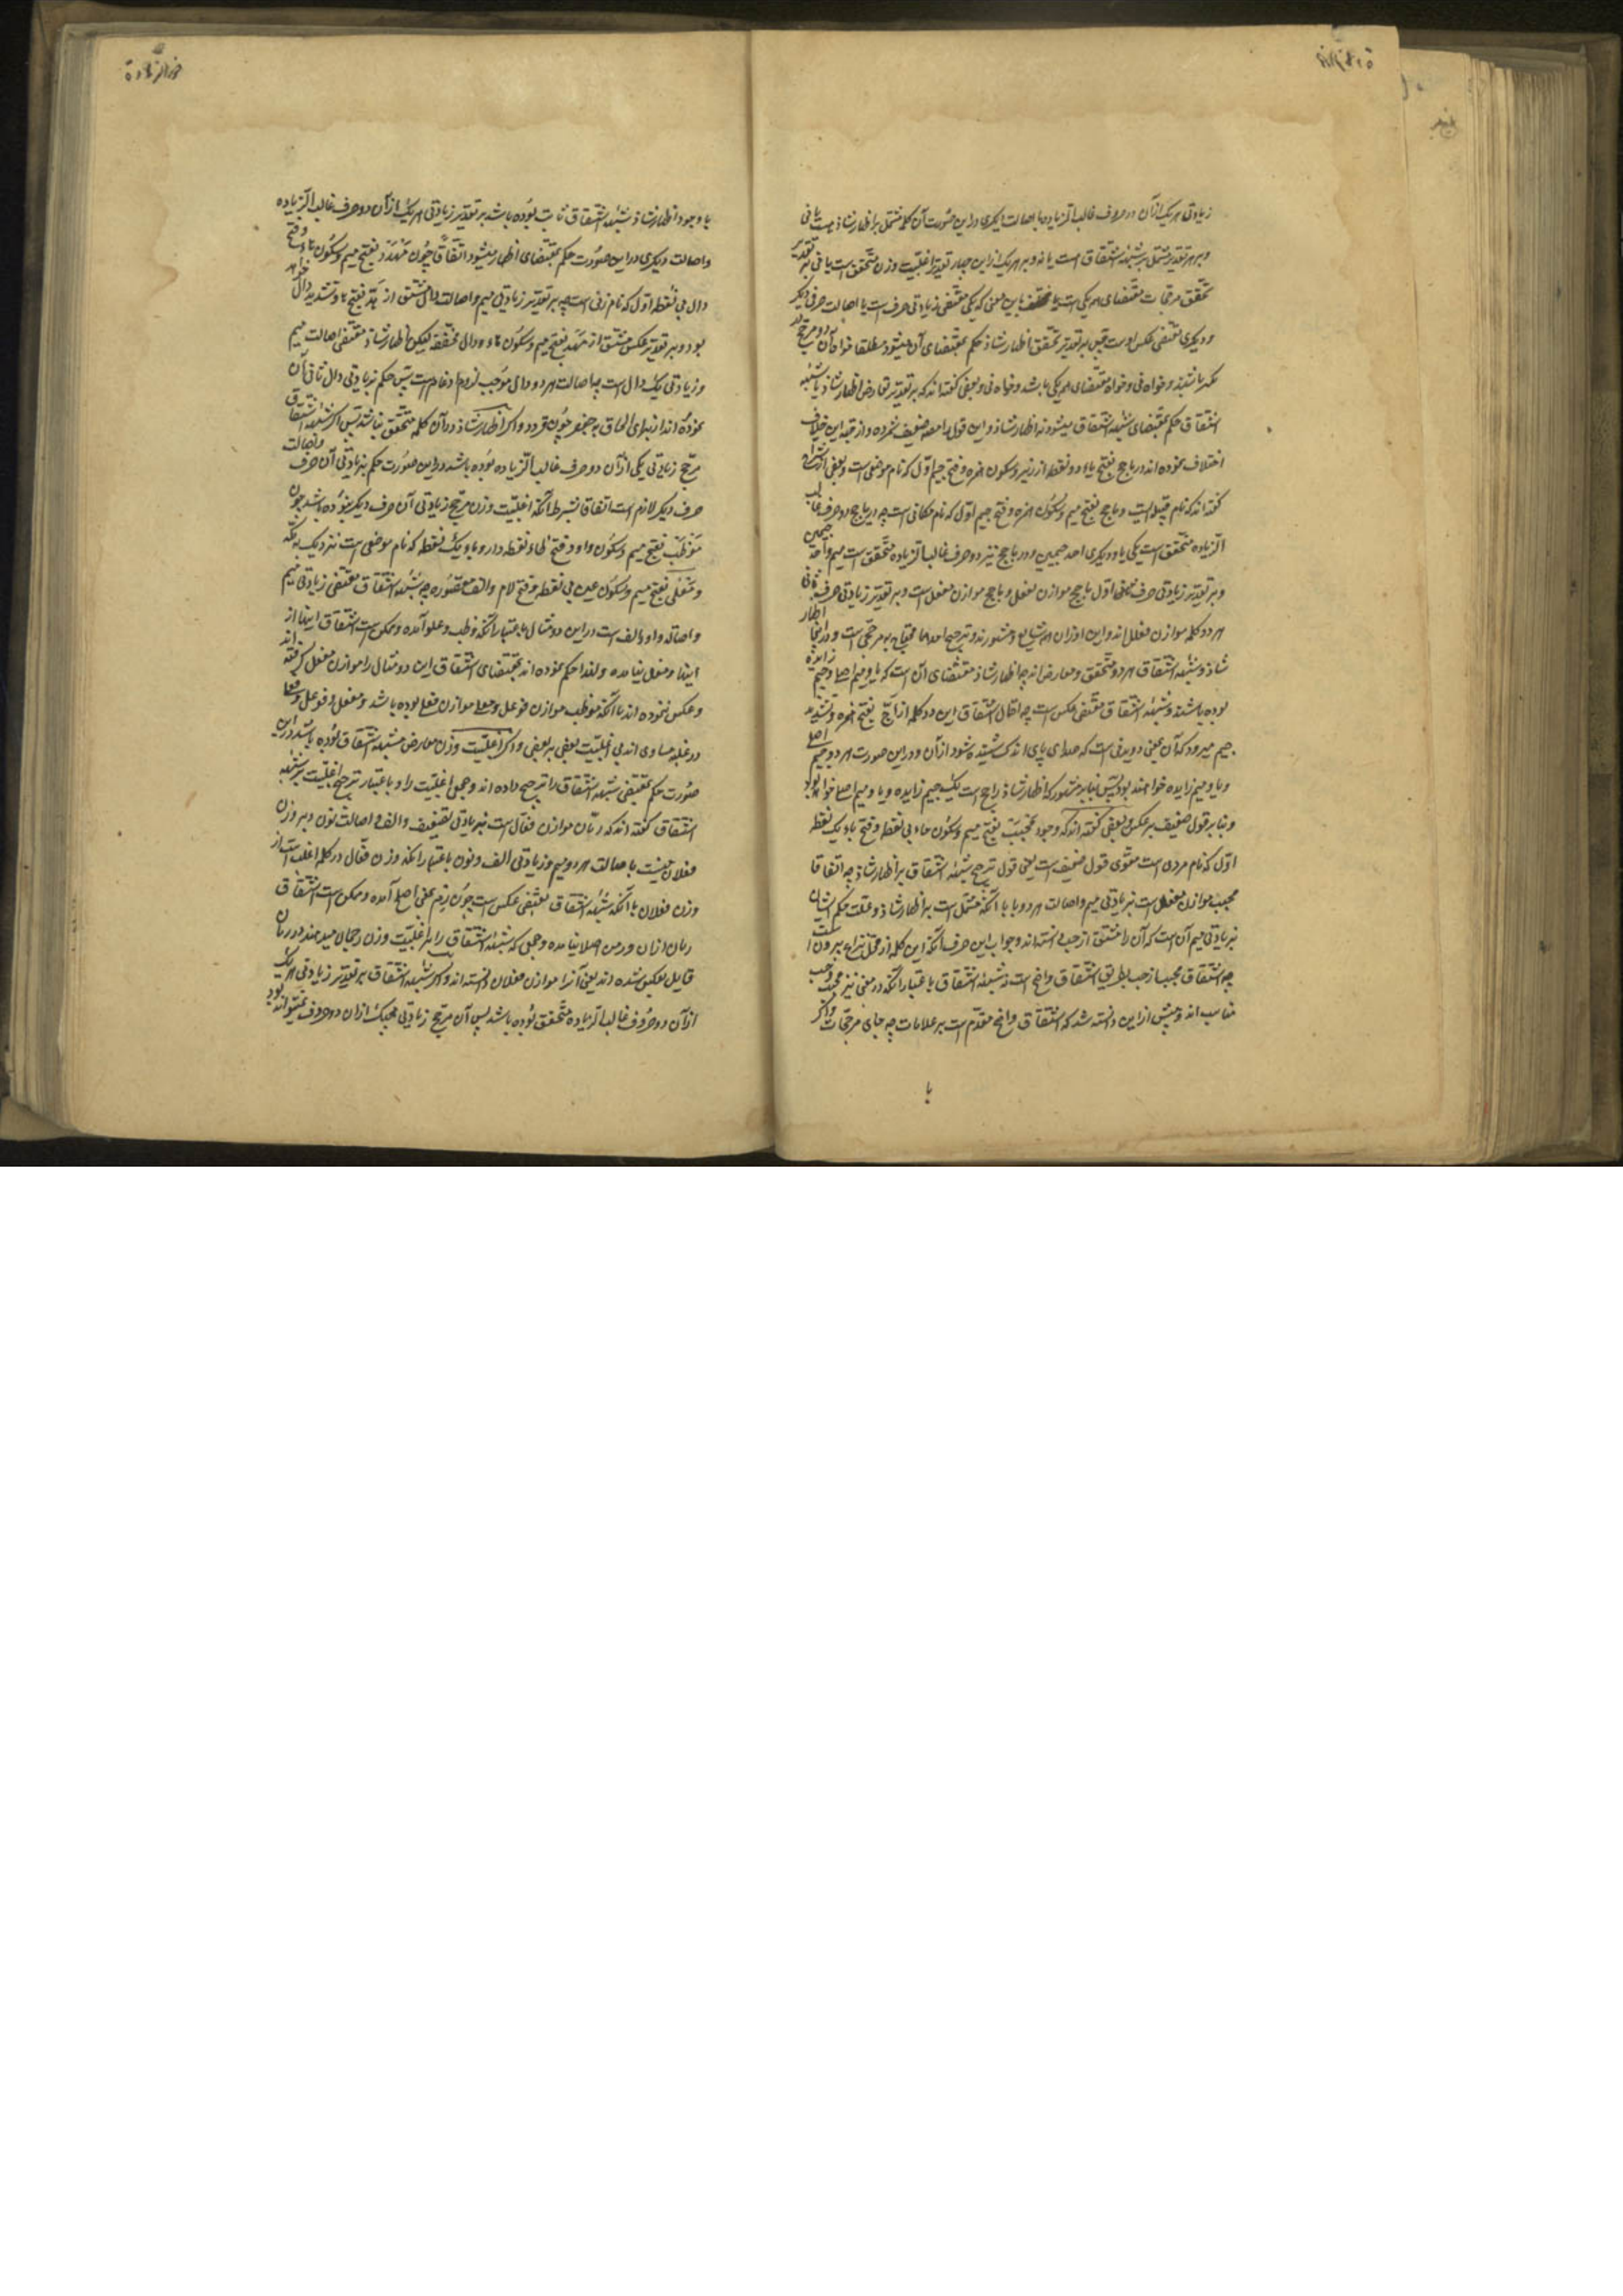 زیادتی هر یک از آن دو حرف غالب الزیاده با اصالت دیگری در این صورت آن کلمه مشتمل بر اظهار شاذ هست یا نی
و بر هر تقدیر مشتمل بر شبهه اشتقاق است یا نه و بر هر یک از این چهار تقدیر اغلبیت وزن متحقق است یا نی بر تقدیر
تحقق مرجحات مقتضای هر یکی است یا مختلف باین معنی که یکی مقتضی زیادتی حرفی است یا اصالت حرفی دیگر
و دیگری مقتضی عکس اوست پس بر تقدیر تحقق اظهار شاذ حکم بمقتضای آن میشود مطلقا خواه آن دو مرجح
دیگر باشند و خواه نی و خواه مقتضای هر یکی باشد و خواه نی و بعضی گفته اند که بر تقدیر تعارض اظهار شاذ با شبهه
اشتقاق حکم بمقتضای شبهه اشتقاق میشود نه اظهار شاذ و این قول را مصنف ضعیف شمرده و از قبیل این خلاف
اختلاف نموده اند در یاجج بفتح یاء دو نقطه از زیر و سکون همزه و فتح جیم اول که نام موضعی است و بعضی از شراح
گفته اند که نام قبیله ایست و ماجج بفتح میم و سکون همزه و فتح جیم اول که نام مکانی است چه در یاجج دو حرف غالب
الزیاده متحقق است یکی یاء و دیگری احد جیمین و در ماجج نیز دو حرف غالب الزیاده متحقق است میم و احد جیمین
و بر تقدیر زیادتی حرف اول یاجج موازن یفعل و ماجج موازن مفعل است و بر تقدیر زیادتی حرف ثانی
هر دو کلمه موازن فعلل اند و این اوزان همه شایع و مشهورند و ترجیح احدهما محتاج به مرجحی است و در اینجا اظهار
شاذ و شبهه اشتقاق هر دو متحقق و معارض اند چه اظهار شاذ مقتضای آن است که یا و میم اصلی و جیم زایده
بوده باشند و شبهه اشتقاق مقتضی عکس است چه احتمال اشتقاق این دو کلمه از اجّ بفتح همزه و تشدید
جیم میرود که آن بمعنی دویدنی است که صدای پای اندک شنیده شود از آن و در این صورت هر دو جیم اصلی
و یا و میم زایده خواهند بود پس بنا بر مشهور که اظهار شاذ راجح است یک جیم زایده و یا و میم اصلی خواهد بود
و بنا بر قول ضعیف بر عکس و بعضی گفته اند که وجود محبب بفتح میم و سکون حاء بی نقطه و فتح باء یک نقطه
اول که نام مردی است مقوی قول ضعیف است یعنی قول ترجیح شبهه اشتقاق بر اظهار شاذ چه اتفاقا
محبب موازن مفعل است بزیادتی میم و اصالت هر دو با با آنکه مشتمل است به اظهار شاذ و علت حکم ایشان
بزیادتی میم آن است که آن را مشتق از حب دانسته اند و جواب این حرف آنکه این کلمه از محل نزاع بیرون است
چه اشتقاق محبب از حب بطریق اشتقاق واضح است نه شبهه اشتقاق باعتبار آنکه در معنی نیز محبب و حب
مناسب اند و پیش از این دانسته شد که اشتقاق واضح مقدم است بر علامات چه جای مرجحات و اگر
با
با وجود اظهار شاذ شبهه اشتقاق ثابت بوده باشد بر تقدیر زیادتی هر یک از آن دو حرف غالب الزیاده
و اصالت دیگری در این صورت حکم بمقتضای اظهار میشود اتفاقا چون مهدد بفتح میم و سکون هاء و فتح
دال بی نقطه اول که نام زنی است چه بر تقدیر زیادتی میم و اصالت دال مشتق از هدّ بفتح ها و تشدید دال خواهد
بود و بر تقدیر عکس مشتق از مهد بفتح میم و سکون هاء و دال مخففه لیکن اظهار شاذ مقتضی اصالت میم
و زیادتی یک دال است چه اصالت هر دو دال موجب لزوم ادغام است پس حکم بزیادتی دال ثانی آن
نموده اند از برای الحاق به جعفر چون قردد و اگر اظهار شاذ در آن کلمه متحقق نباشد پس اگر شبهه اشتقاق
مرجح زیادتی یکی از آن دو حرف غالب الزیاده بوده باشد در این صورت حکم بزیادتی آن حرف و اصالت
حرف دیگر لازم است اتفاقا بشرط آنکه اغلبیت وزن مرجح زیادتی آن حرف دیگر نبوده باشد چون
موظب بفتح میم و سکون واو و فتح ظاء نقطه دار و باء یک نقطه که نام موضعی است نزدیک به مکه
و معلی بفتح میم و سکون عین بی نقطه و فتح لام و الف مقصوره چه شبهه اشتقاق مقتضی زیادتی میم
و اصاله واو و الف است در این دو مثال باعتبار آنکه وظب و علو آمده و ممکن است اشتقاق اینها از
اینها و مفعل نیامده و لهذا حکم نموده اند بمقتضای اشتقاق این دو مثال را موازن مفعل گرفته اند
و عکس ننموده اند با آنکه موظب موازن فوعل و معلی موازن فعلی بوده باشد و مفعل و فوعل و فعلی
در غلبه مساوی اند بی اغلبیت بعضی بر بعضی و اگر اغلبیت وزن معارض شبهه اشتقاق بوده باشد در این
صورت حکم بمقتضی شبهه اشتقاق را ترجیح داده اند و جمعی اغلبیت را و باعتبار ترجیح اغلبیت بر شبهه
اشتقاق گفته اند که رمان موازن فعال است بزیادتی تضعیف و الف و اصالت نون و بر وزن
فعلان نیست با اصالت هر دو میم و زیادتی الف و نون باعتبار آنکه وزن فعال در کلمه اغلب است از
وزن فعلان با آنکه شبهه اشتقاق مقتضی عکس است چون رم بمعنی اصلح آمده و ممکن است اشتقاق
رمان از آن و رمن اصلا نیامده و جمعی که شبهه اشتقاق را بر اغلبیت وزن رجحان میدهند در رمان
قایل بعکس شده اند یعنی آنرا موازن فعلان دانسته اند و اگر شبهه اشتقاق بر تقدیر زیادتی هر یک
از آن دو حرف غالب الزیاده متحقق بوده باشد پس آن مرجح زیادتی هیچیک از آن دو حرف نمیتواند بود